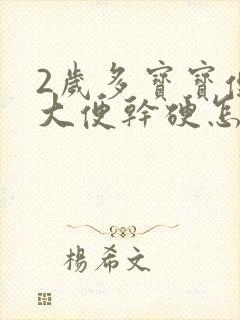 2歲多寶寶
大便幹硬怎
楊希文